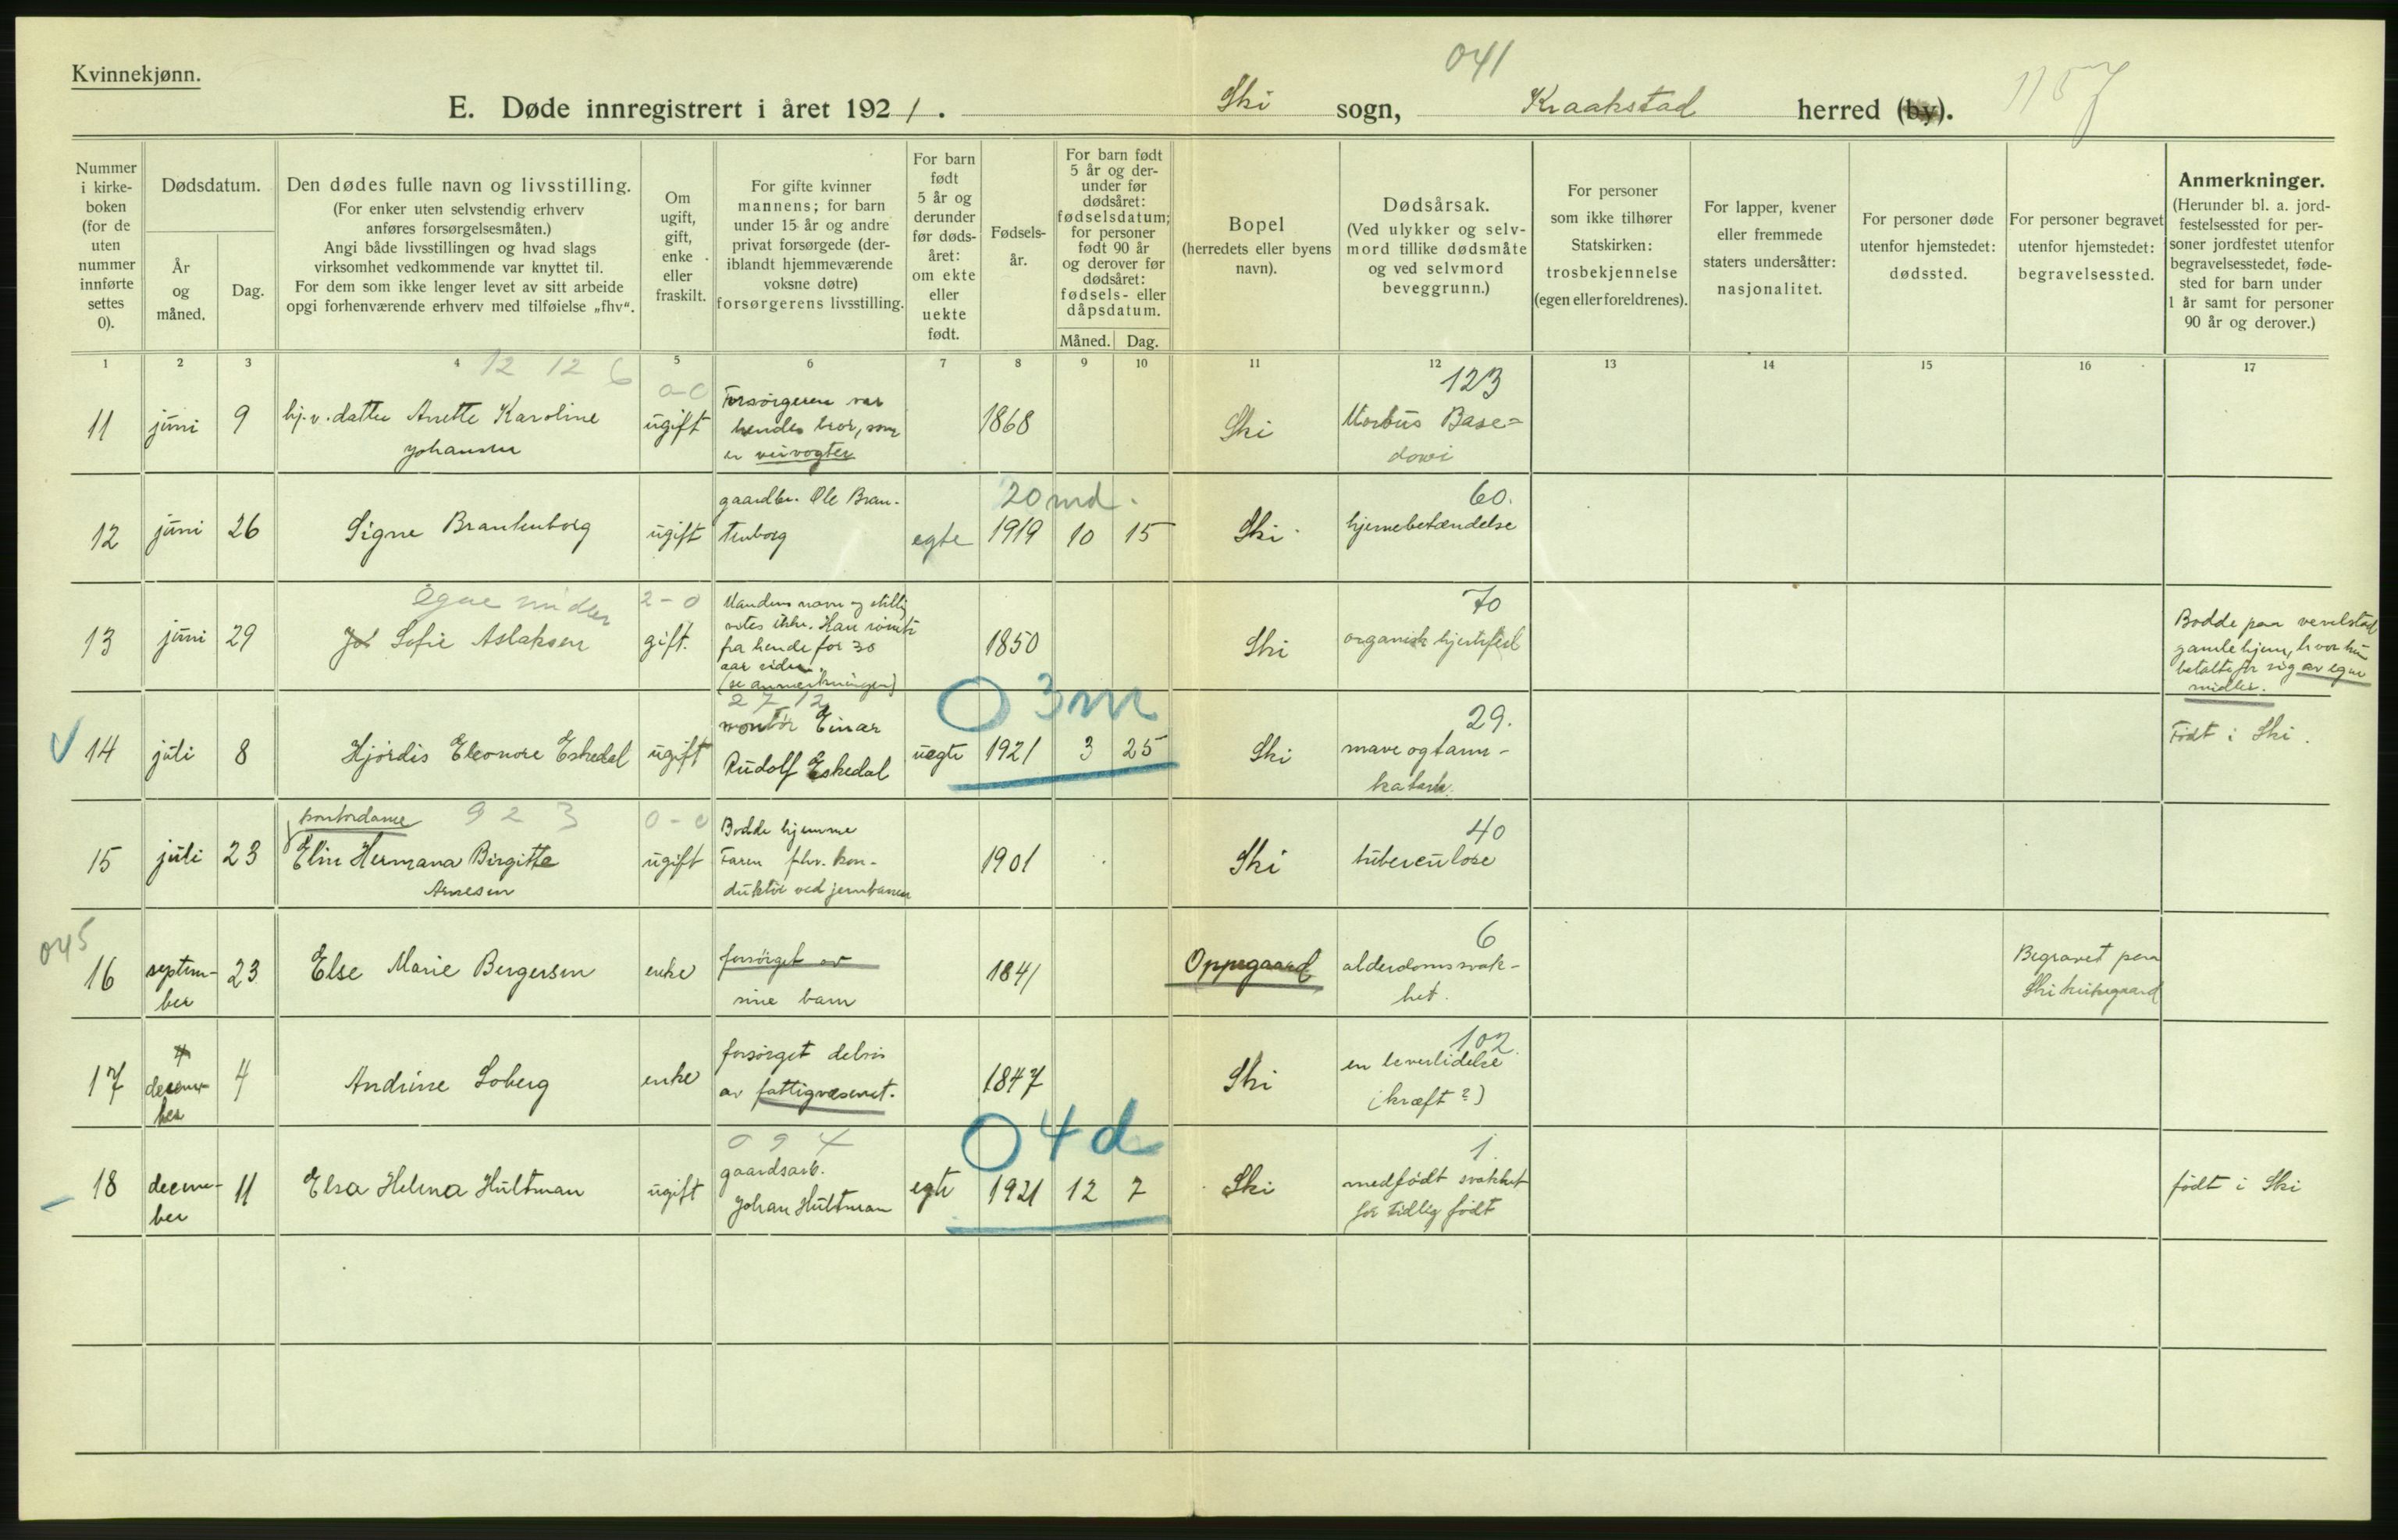 Kvinnekjønn.
041
1157
E. Døde innregistrert i året 1921. Ski sogn, Kraakstad herred (by).
Nummer
i kirke-
boken
(for de
uten
nummer
innførte
settes
0).
Dødsdatum.
År
og
måned.
Dag.
Den dødes fulle navn og livsstilling.
(For enker uten selvstendig erhverv
anføres forsørgelsesmåten.)
Angi både livsstillingen og hvad slags
virksomhet vedkommende var knyttet til.
For dem som ikke lenger levet av sitt arbeide
opgi forhenværende erhverv med tilføielse „fhv“.
Om
ugift,
gift,
enke
eller
fraskilt.
For gifte kvinner
mannens; for barn
under 15 år og andre
privat forsørgede (der-
iblandt hjemmeværende
voksne døtre)
forsørgerens livsstilling.
For barn
født
5 år og
derunder
før døds-
året:
om ekte
eller
uekte
født.
Fødsels-
år.
For barn født
5 år og der-
under før
dødsåret:
fødselsdatum;
for personer
født 90 år
og derover før
dødsåret:
fødsels- eller
dåpsdatum.
Måned. Dag.
Bopel
(herredets eller byens
navn).
Dødsårsak.
(Ved ulykker og selv-
mord tillike dødsmåte
og ved selvmord
beveggrunn.)
For personer
som ikke tilhører
Statskirken:
trosbekjennelse
(egen eller foreldrenes).
For lapper, kvener
eller fremmede
staters undersåtter:
nasjonalitet.
For personer døde
utenfor hjemstedet:
dødssted.
For personer begravet
utenfor hjemstedet:
begravelsessted.
Anmerkninger.
(Herunder bl. a. jord-
festelsessted for per-
soner jordfestet utenfor
begravelsesstedet, føde-
sted for barn under
1 år samt for personer
90 år og derover.)
1 2 3 4 5 6 7 8 9 10 11 12 13 14 15 16 17
12 12 6
0-0
123
11 juni 9 hj.v. datter Anette Karoline
Johansen
ugift
Forsørgeren var
hendes bror, som
er veivogter
1868 Ski
Morbus Base=
dowi
20 md.
60.
12 juni 26 Signe Brantenborg ugift
gaardbr. Ole Bran-
tenborg
egte 1919 10 15 Ski hjernebetændelse
egne midler
2-0
70
13 juni 29 Sofie Aslaksen gift.
Mandens navn og stilling
vites ikke. Han rømte
fra hende for 30
aar siden.
(se anmerkninger)
1850 Ski organisk hjertefeil
Bodde paa
gamlehjem, hvor hun
betalte for sig av egne
midler.
27 12
0 3m
29.
14 juli 8 Hjørdis Eleonore Eskedal ugift
montør Einar
Rudolf Eskedal
uegte 1921 3 25 Ski
mave og tarm-
katarrh.
Født i Ski.
kontordame 9 2 3
0-0
40
15 juli 23 Elin Hermana Birgitte
Arnesen
ugift
Bodde hjemme
Faren fhv. kon-
duktør ved jernbanen
1901 Ski tuberculose
045
6
16 septem-
ber
23 Else Marie Bergersen enke
forsørget av
sine barn
1841 Oppegaard
alderdomssvak-
het.
Begravet paa
Ski kirkegaard
102.
17 decem-
ber
4 Andrine Soberg enke
forsørget delvis
av fattigvæsenet.
1847 Ski
en leverlidelse
(kræft?)
0 9 4
0 4d
1.
18 decem-
ber
11 Elsa Helena Hultman ugift
gaardsarb.
Johan Hultman
egte 1921 12 7 Ski
medfødt svakhet
for tidlig født
født i Ski